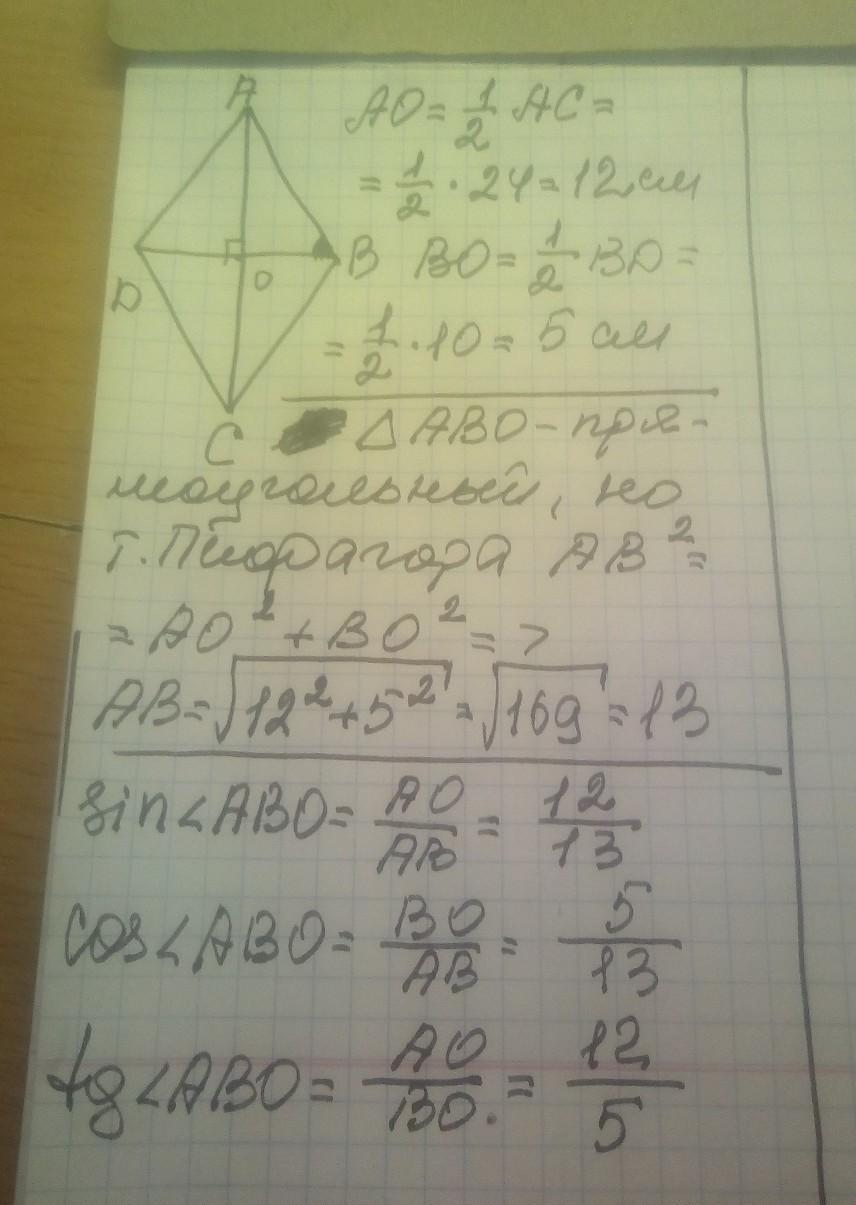 A
AO = 1/2 AC =
= 1/2 · 24 = 12 см
D O B BO = 1/2 BD =
= 1/2 · 10 = 5 см
C △ABO – пря-
моугольный, но
т. Пифагора AB² =
= AO² + BO² =>
AB = √12² + 5² = √169 = 13
sin<ABO = AO/AB = 12/13
cos<ABO = BO/AB = 5/13
tg<ABO = AO/BO. = 12/5